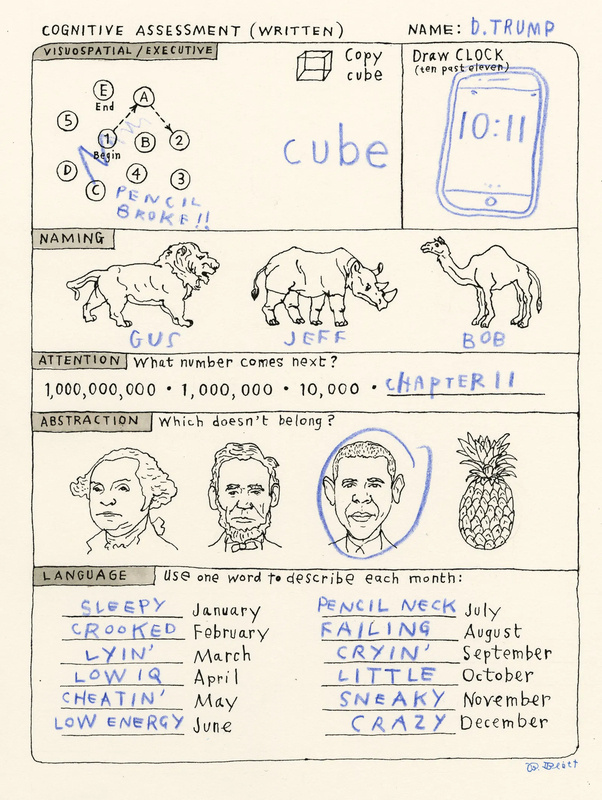 COGNITIVE ASSESSMENT (WRITTEN) NAME: D. TRUMP
VISUOSPATIAL / EXECUTIVE
Copy
cube
Draw CLOCK
(ten past eleven)
E
End
A
5
1
Begin
B
2
D
4
3
C
PENCIL
BROKE!!
cube
10:11
NAMING
GUS JEFF BOB
ATTENTION What number comes next?
1,000,000,000 • 1,000,000 • 10,000 • CHAPTER 11
ABSTRACTION Which doesn't belong?
LANGUAGE Use one word to describe each month:
SLEEPY January PENCIL NECK July
CROOKED February FAILING August
LYIN' March CRYIN' September
LOW IQ April LITTLE October
CHEATIN' May SNEAKY November
LOW ENERGY June CRAZY December